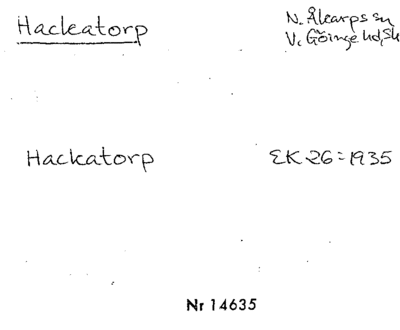 Hackatorp
N. Åkarps sn
V. Göinge hd, Sk
Hackatorp
EK 26 = 1935
Nr 14635